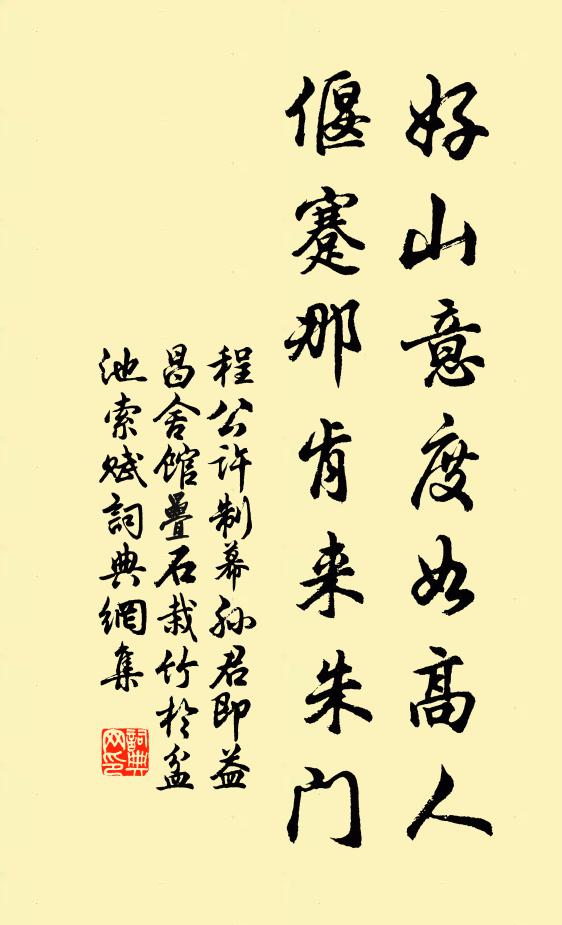 好山意度如高人
偃蹇那肯来朱门
程公许制幕孙君即益
昌舍馆叠石栽竹于盆
池索赋词典网集
詞典
网印